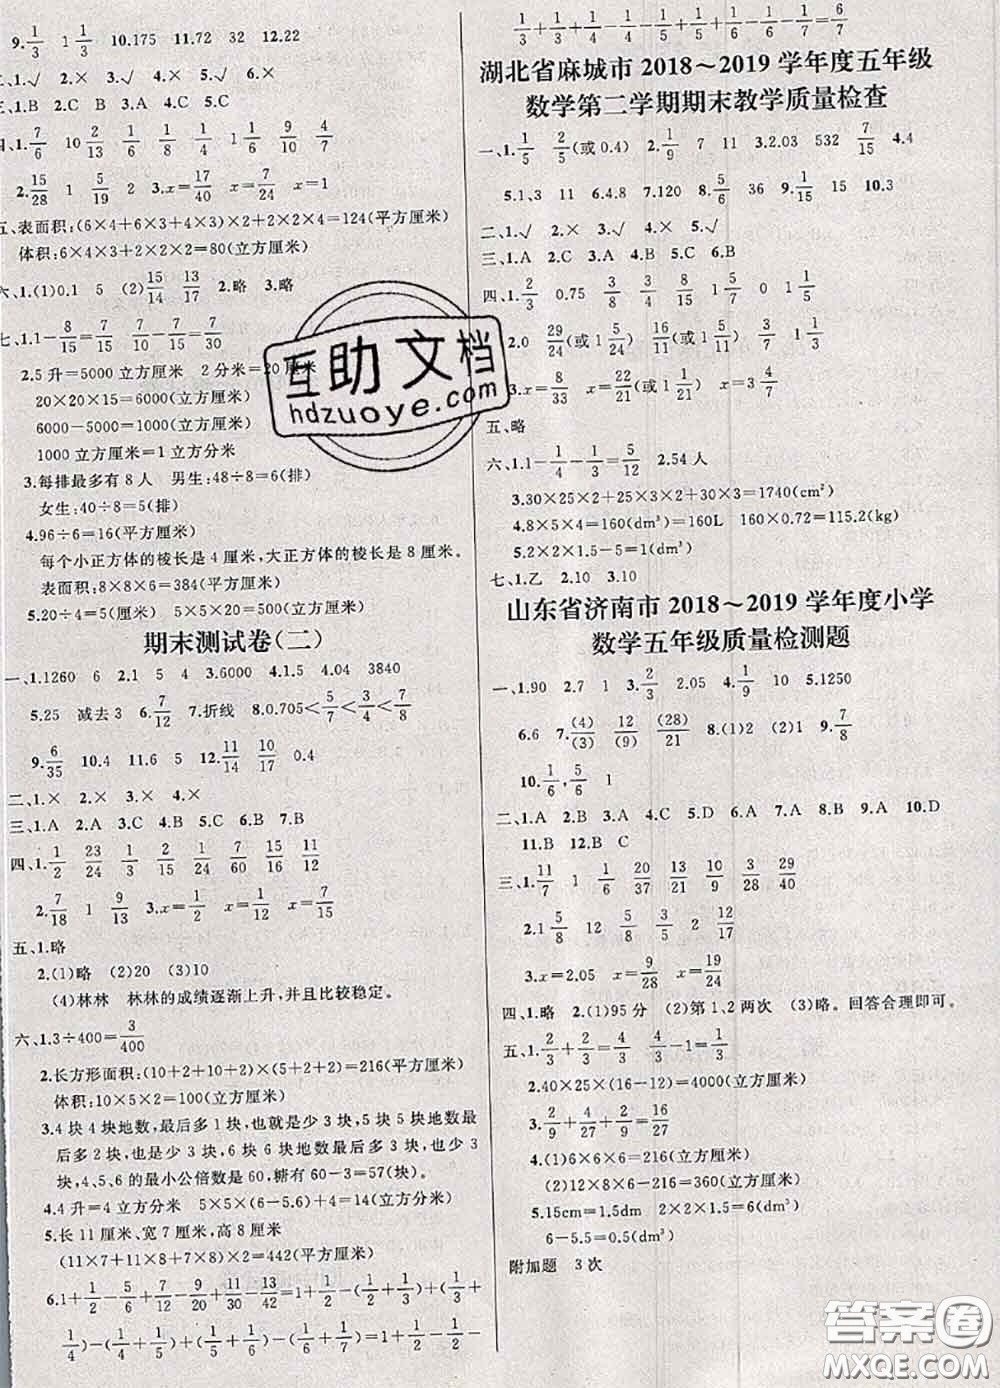 9. 1/3 1 1/3 10.175 11.72 32 12.22
二、1.√ 2.× 3.× 4.√ 5.√ 6.×
三、1.B 2.C 3.A 4.B 5.C
四、1. 7/6 10 2/13 1/6 1/6 1/6 9/10 4/7
2. 15/28 1 5/19 2 3.x=17/40 x=7/24 x=1
五、表面积:(6×4+6×3+4×3)×2+2×2×4=124(平方厘米)
体积:6×4×3+2×2×2=80(立方厘米)
六、1.(1)0.1 5 (2)15/14 13/17 2.略 3.略
七、1.1-8/15=7/15 7/15-7/15=7/30
2.5升=5000立方厘米 2分米=20厘米
20×20×15=6000(立方厘米)
6000-5000=1000(立方厘米)
1000立方厘米=1立方分米
3.每排最多有8人 男生:48÷8=6(排)
女生:40÷8=5(排)
4.96÷6=16(平方厘米)
每个小正方体的棱长是4厘米,大正方体的棱长是8厘米。
表面积:8×8×6=384(平方厘米)
5.20÷4=5(厘米) 5×5×20=500(立方厘米)
期末测试卷(二)
一、1.1260 6 2.1 5 4 3.6000 4.1.5 4.04 3840
5.25 减去3 6. 7/12 7.折线 8.0.705<5/7<3/4<7/8
9. 6/35 10.4 11.6 5 12. 11/14 10/17 0.4
二、1.× 2.× 3.× 4.×
三、1.A 2.A 3.C 4.B 5.C 6.B 7.B
四、1. 1/2 23/24 1/3 2/15 1/24 7/60 15/16 11/12
2. 7/18 1 9/13 3.x=1/2 x=1/12 x=7/15
五、1.略
2.(1)略 (2)20 (3)10
(4)林林 林林的成绩逐渐上升,并且比较稳定。
六、1.3÷400=3/400
2.长方形面积:(10+2+10+2)×(5+2+2)=216(平方厘米)
体积:10×5×2=100(立方厘米)
3.4块4块地数,最后多1块,也就是少3块,5块5块地数最
后多2块,也是少3块,6块6块地数最后多3块,也是少3
块,4、5、6的最小公倍数是60,糖有60-3=57(块)。
4.4升=4立方分米 5×5×(6-5.6)+4=14(立方分米)
5.长11厘米、宽7厘米、高8厘米
(11×7+11×8+7×8)×2=442(平方厘米)
6.1+1/2-5/6+7/12-9/20+11/30-13/42=1+1/2-(1/2+1/3)+(1/3+
1/4)-(1/4+1/5)+(1/5+1/6)-(1/6+1/7)=1+1/2-1/2-
1/3+1/3+1/4-1/4-1/5+1/5+1/6-1/6-1/7=1-1/7=6/7
湖北省麻城市2018~2019学年度五年级
数学第二学期期末教学质量检查
一、1. 1/5 2/5(或0.4) 2. 1/9 7 11 3.2.03 532 7/15 4.4
5.1、3 11 6.4.8 7.120 8. 5/6 36 9. 1/15 15 10.3
二、1.√ 2.× 3.√ 4.× 5.√
三、1.A 2.C 3.A 4.B 5.C 6.B
四、1. 2/3 0.75 3/8 3/4 1 5/7 1 0 1 1/5
2.0 29/24(或1 5/24) 16/11(或1 5/11) 7/12 1 7/9
3.x=8/33 x=22/21(或1 1/21) x=3 4/7
五、略
六、1.1-1/4-1/3=5/12 2.54人
3.30×25×2+(30+25)×2×2+20=1740(cm²)
4.8×5×4=160(dm³)=160L 160×0.72=115.2(kg)
5.2×2×1.5-5=1(dm³)
七、1.乙 2.10 3.10
山东省济南市2018~2019学年度小学
数学五年级质量检测题
一、1.90 2.7 1 3. 2/3 2.05 4. 1/9 10 5.1250
6.6 7. (4)/(3) 12/(9) (28)/21 8.(1)2 (2)1 9. 7/8
10. 1/6、5/6 1
二、1.A 2.B 3.C 4.C 5.D 6.A 7.A 8.B 9.C 10.D
11.B 12.B C
三、1. 11/7 1 1/6 20/37 13/21 10/9 3/28 29/40
2.1 5/8 12 5/8 3/5 2 12/19
3.x=2.05 x=9/28 x=19/24
四、1.略 2.(1)95分 (2)第1、2两次 (3)略。回答合理即可。
五、1. 2/3+2/3=4/3 4/3-1=1/3
2.40×25×(16-12)=4000(立方厘米)
3. 2/9+4/27+2/9=16/27
4.(1)6×6×6=216(立方厘米)
(2)12×8×6-216=360(立方厘米)
5.15cm=1.5dm 2×2×1.5=6(dm³)
6-5.5=0.5(dm³)
附加题 3次
互助文档
hdzuoye.com
答案圈
MXQE.COM